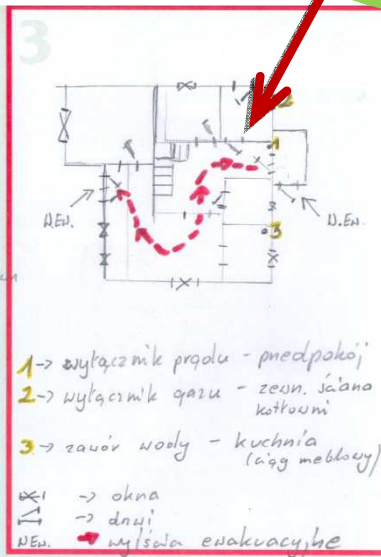 3
2
1
W.EW.
W.EW.
3
1 -> wyłącznik prądu - przedpokój
2 -> wyłącznik gazu - zewn. ściana
kotłowni
3 -> zawór wody - kuchnia
(ciąg meblowy)
-> okna
-> drzwi
W.EW. -> wyjścia ewakuacyjne